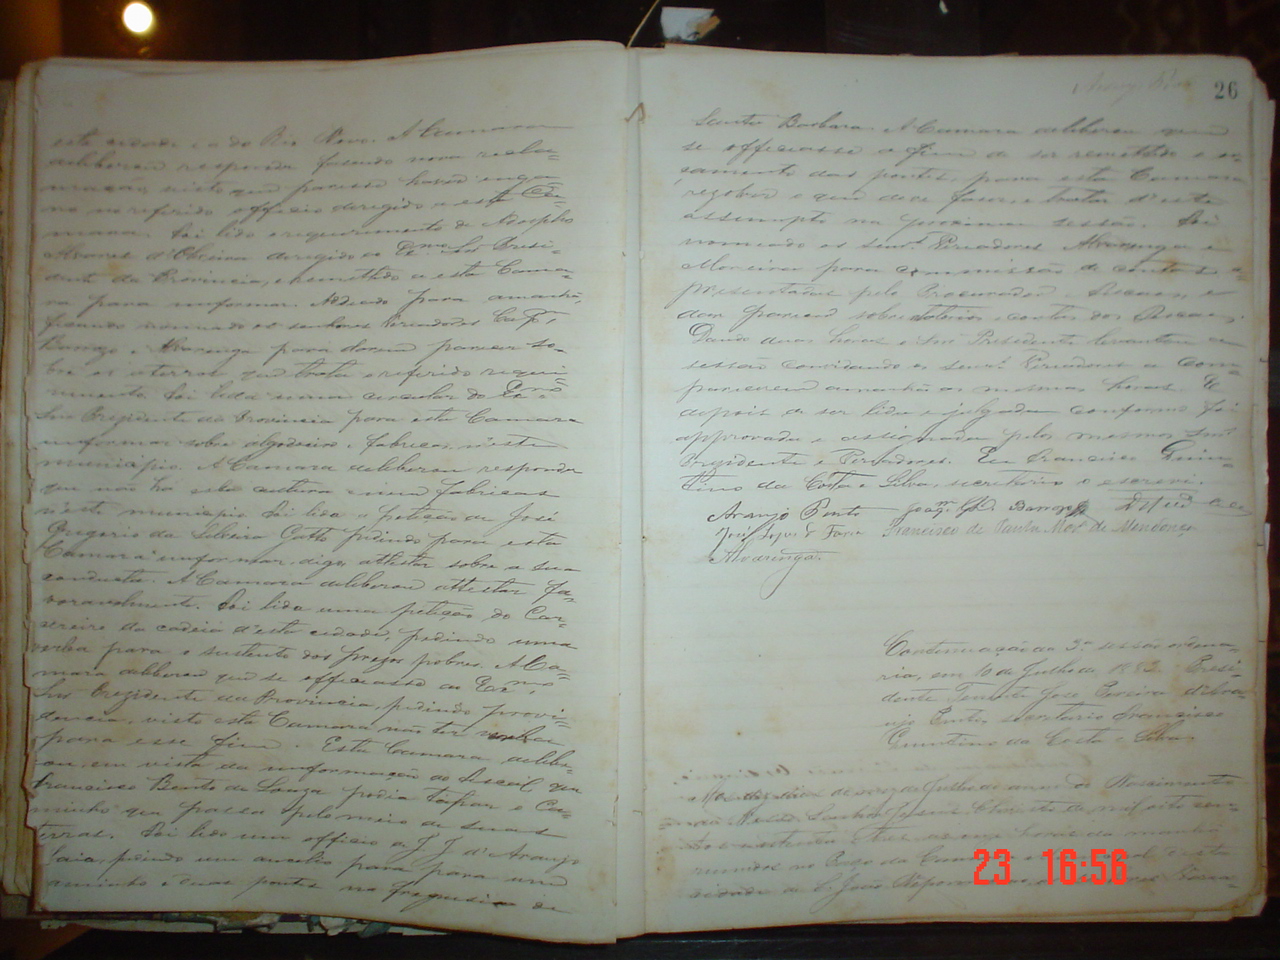 esta cidade e a do Rio Novo. A Camara
deliberou responder fasendo nova recla-
mação, visto que parece haver enga-
no no referido officio dirigido a esta Ca-
mara. Foi lido o requerimento de Adolpho
Alvares d'Oliveira dirigido ao Exmo Snr Presi-
dente da Provincia, e remettido a esta Cama-
ra para informar. Addiado para amanhã,
ficando nomeado os senhores Vereadores Capm
Barroso e Alvarenga para darem parecer so-
bre os aterros que trata o referido requiri-
mento. Foi lida uma circular do Exmo
Snr Presidente da Provincia para esta Camara
informar sobre algodoeiro e fabricas n'este
municipio. A Camara deliberou responder
que não ha esta cultura e nem fabricas
n'este municipio. Foi lida a petição de José
Gregorio da Silveira Gatto pidindo para esta
Camara informar, digo, attestar sobre a sua
conducta. A Camara deliberou attestar fa-
voravelmente. Foi lida uma petição do Car-
sereiro da cadeia d'esta cidade, pidindo uma
verba para o sustento dos prezos pobres. A Ca-
mara deliberou que se officiasse ao Exmo
Snr Prezidente da Provincia, pidindo provi-
dencia, visto esta Camara não ter verba
para esse fim. Esta Camara delibe-
rou em vista da informação do Fiscal que
Francisco Bento de Souza podia tapar o Ca-
minho que passa pelo meio de suas
terras. Foi lido um officio de J. J. d'Araujo
Maia, pidindo um auxilio para um
caminho e duas pontes na freguesia de
26
Santa Barbara. A Camara deliberou que
se officiasse a fim de ser remettido o or-
çamento das pontes, para esta Camara
rezolver o que deve faser, e tratar d'este
assumpto na proxima sessão. Foi
nomeado os senrs Vereadores Alvarenga e
Moreira para commissão de contas a-
presentadas pelo Procurador e Fiscaes, e
dar parecer sobre as contas dos Fiscaes.
Dando duas horas o Snr Presidente levantou a
sessão convidando os senrs Vereadores a com-
parecerem amanhã as mesmas horas. E
depois de ser lida e julgada conforme foi
approvada e assignada pelos mesmos Snrs
Presidente e Vereadores. Eu Francisco Quin-
tino da Costa e Silva, secretario o escrevi.
Araujo Porto Joaqm Barroso
José Lopes Faria Francisco de Paula Mor. de Mendonça
Alvarenga
Continuação da 3a sessão ordina-
ria, em 10 de Julho de 1883. Presi-
dente Tenente José Pereira d'Ara-
ujo Porto, secretario Francisco
Quintino da Costa e Silva.
Aos dez dias do mez de Julho do anno do Nascimento
de Nosso Senhor Jesus Christo de mil oito cen-
tos e oitenta e tres, as onze horas da manhã
reunidos no Paço da Camara Municipal d'esta
cidade de S. João Nepomuceno, os senhores Verea-
23 16:56